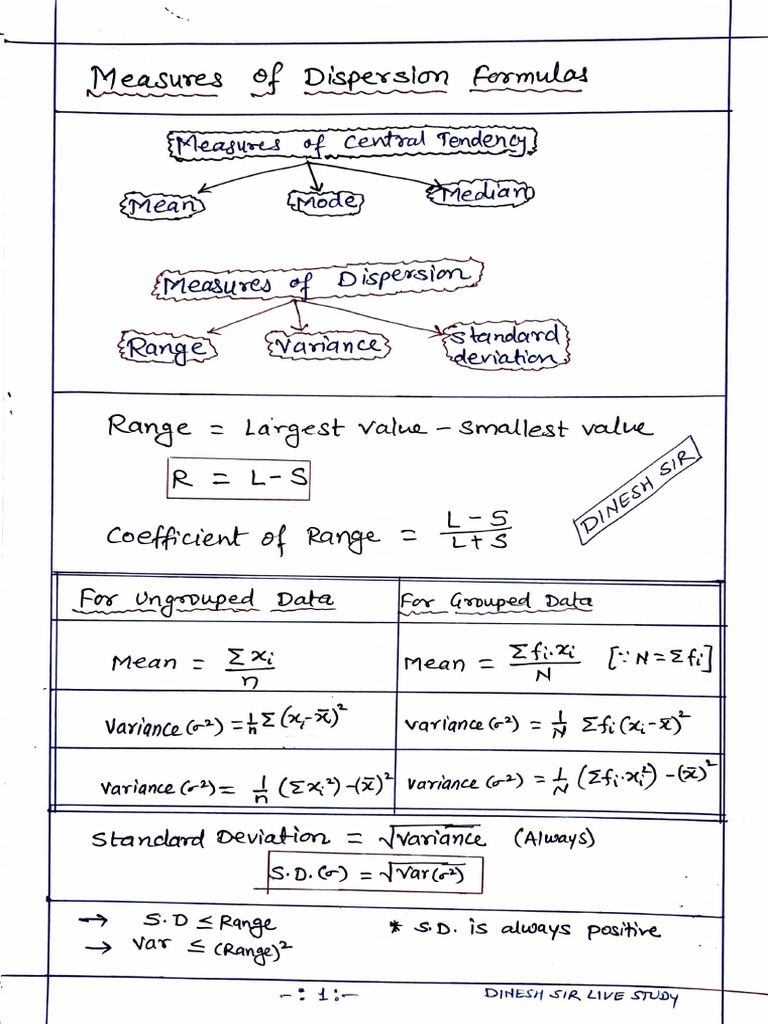 Measures of Dispersion Formulas
Measures of Central Tendency
Mean Mode Median
Measures of Dispersion
Range Variance Standard deviation
Range = Largest value - smallest value
R = L-S
DINESH SIR
Coefficient of Range = (L-S)/(L+S)
For Ungrouped Data
For Grouped Data
Mean = Σxi/n
Mean = Σfi·xi/N [∵ N=Σfi]
Variance(σ²) = 1/n Σ(xi-x̄)²
Variance(σ²) = 1/N Σfi(xi-x̄)²
Variance(σ²) = 1/n (Σxi²)-(x̄)²
Variance(σ²) = 1/N (Σfi·xi²)-(x̄)²
Standard Deviation = √Variance (Always)
S.D.(σ) = √Var(σ²)
→ S.D ≤ Range
* S.D. is always positive
→ Var ≤ (Range)²
-: 1:-
DINESH SIR LIVE STUDY